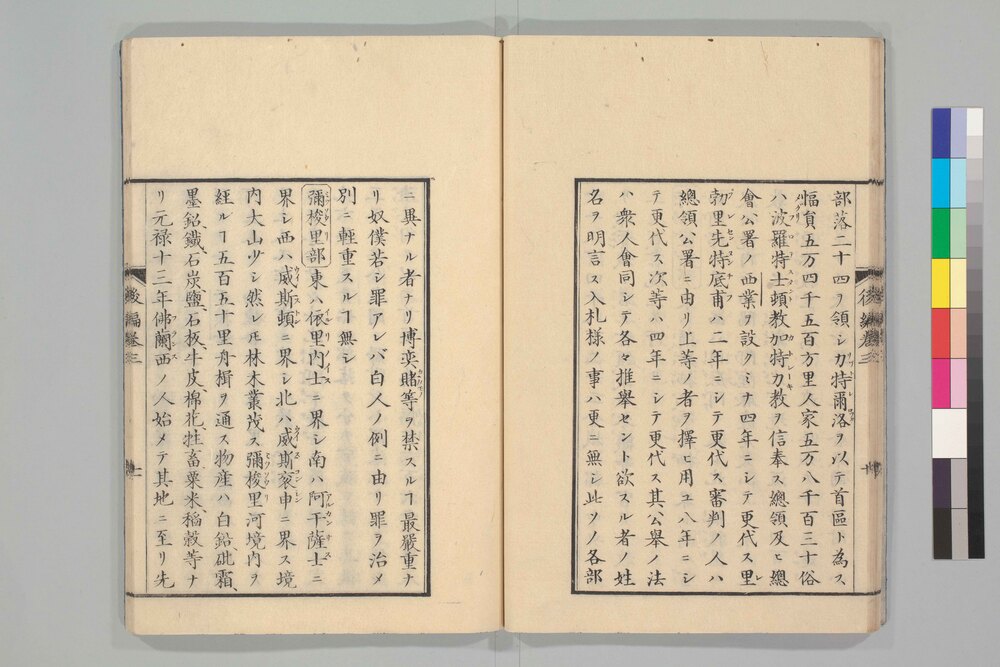 部落二十四ヲ領シ力特爾洛ヲ以テ首區ト為ス
幅員五万四千五百方里人家五万八千百三十俗
ハ波羅特士頓教加特力教ヲ信奉ス總領及ヒ總
會公署ノ西業ヲ設クミナ四年ニシテ更代ス里
勃里先特底甫ハ二年ニシテ更代ス審判ノ人ハ
總領公署ニ由リ上等ノ者ヲ擇ヒ用ユ八年ニシ
テ更代ス次等ハ四年ニシテ更代ス其公舉ノ法
ハ衆人會同シテ各々推舉セント欲スル者ノ姓
名ヲ明言ス入札様ノ事ハ更ニ無シ此ソノ各部
後編巻三
十
ニ異ナル者ナリ博奕賭等ヲ禁スルヿ最嚴重ナ
リ奴僕若シ罪アレバ白人ノ例ニ由リ罪ヲ治メ
別ニ輕重スルヿ無シ
彌梭里部東ハ依里内士ニ界シ南ハ阿干薩士ニ
界シ西ハ威斯頓ニ界シ北ハ威斯袞申ニ界ス境
内大山少シ然レ𪜈林木叢茂ス彌梭里河境内ヲ
経ルヿ五百五十里舟楫ヲ通ス物産ハ白鉛砒霜
墨鉛鐵石炭鹽石板牛皮棉花牲畜粟米稲穀等ナ
リ元禄十三年佛蘭西ノ人始メテ其地ニ至リ先
後編巻三
十一